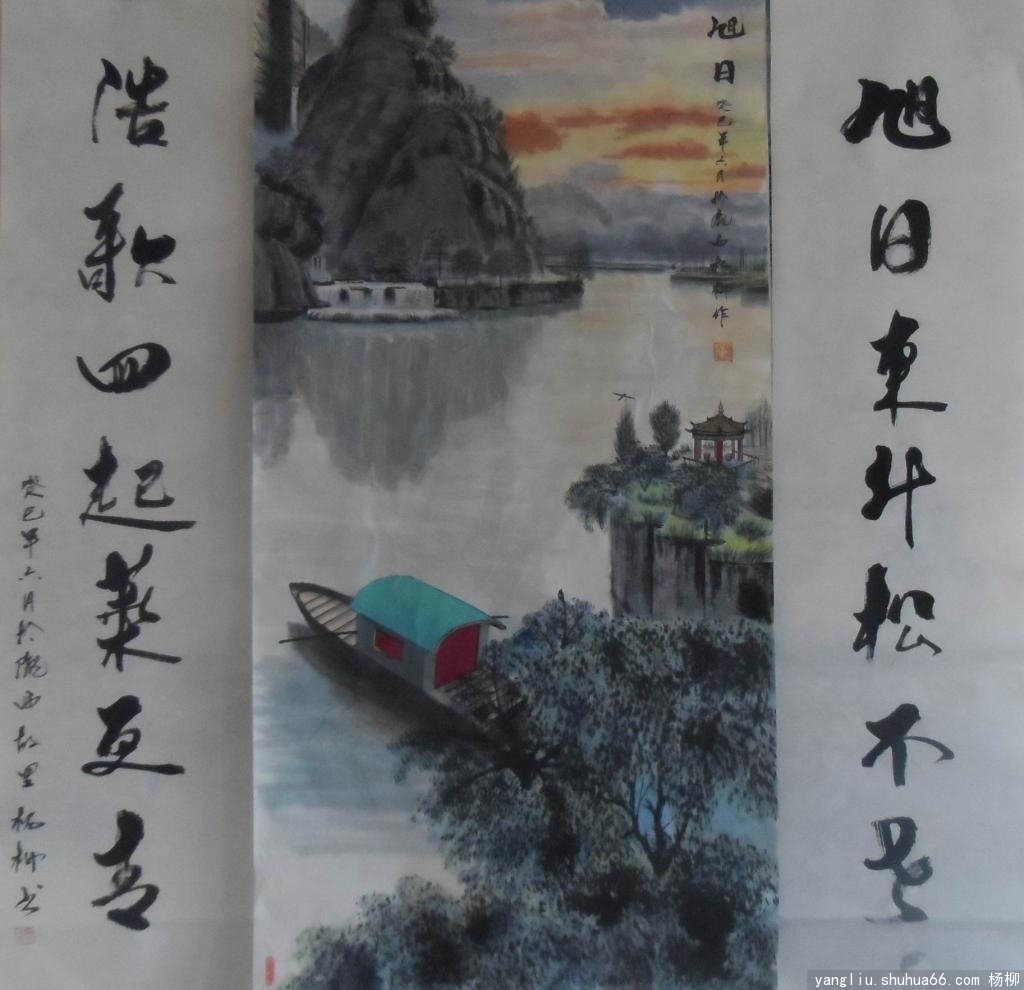 旭日東升松不老
旭日
癸巳年六月於隴西杨柳作
浩歌四起葉更青
癸巳年六月於隴西故里杨柳书
yangliu.shuhua66.com 杨柳